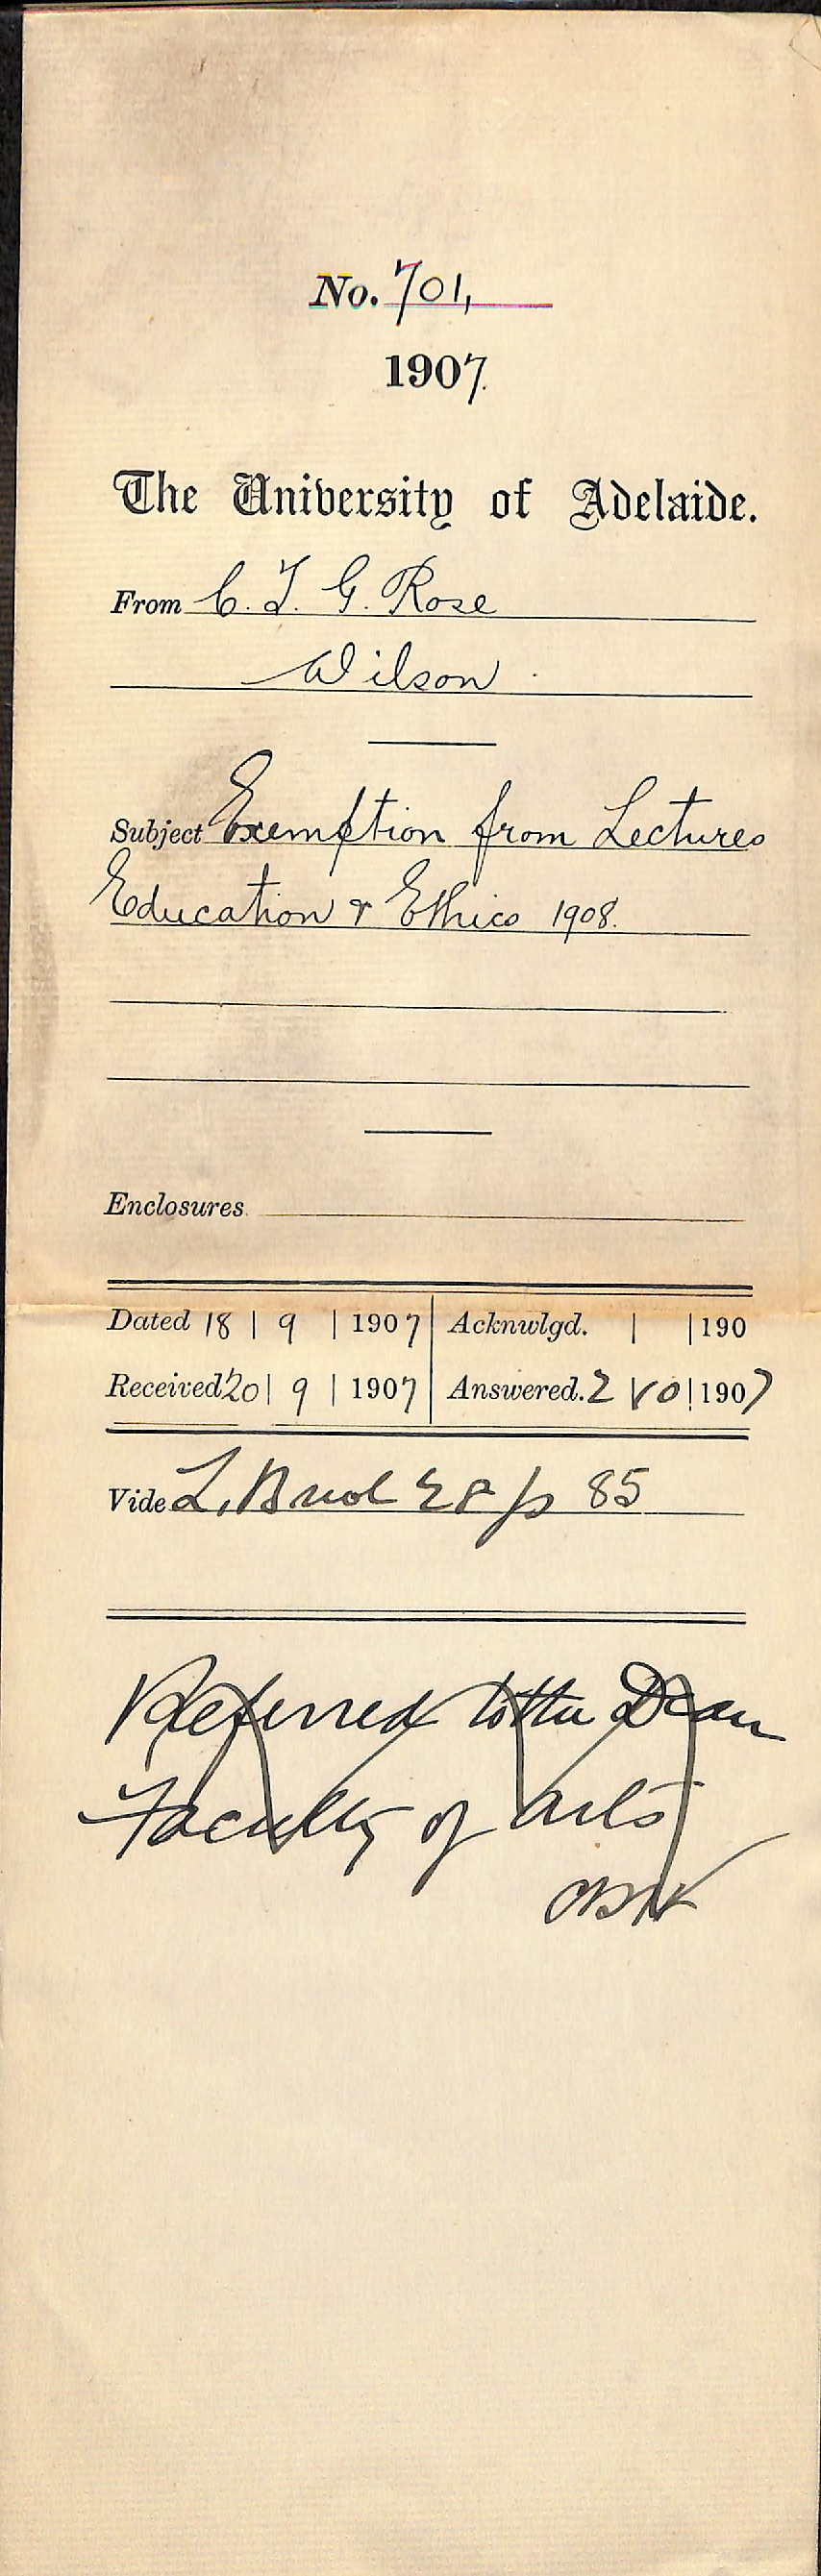 No. 701,
1907.
The University of Adelaide.
From C. T. G. Rose
Wilson
Subject Exemption from Lectures
Education & Ethics 1908.
Enclosures
Dated 18 | 9 | 1907 | Acknwlgd. | | 190
Received 20 | 9 | 1907 | Answered. 2 | 10 | 1907
Vide L. B vol 28 p 85
Referred to the Dean
Faculty of Arts